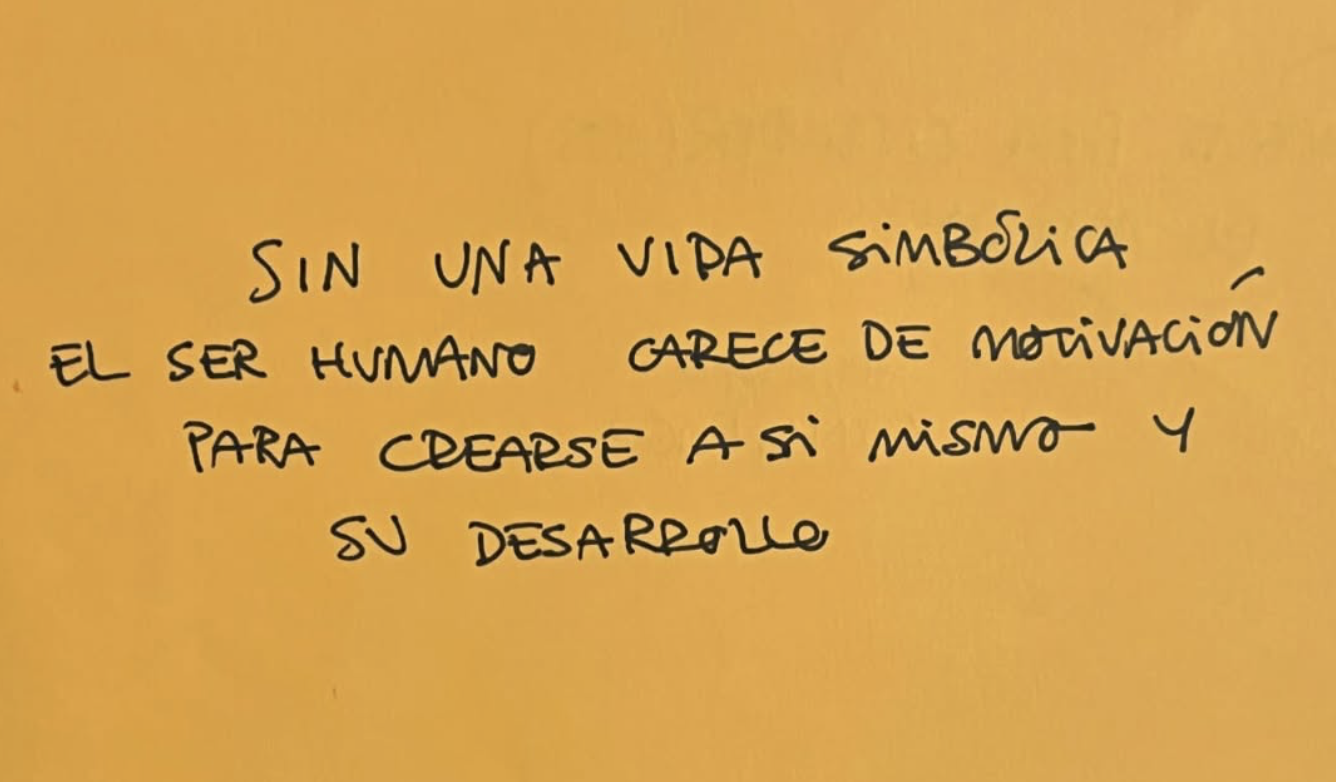 SIN UNA VIDA SIMBÓLICA
EL SER HUMANO CARECE DE MOTIVACIÓN
PARA CREARSE A SI MISMO Y
SU DESARROLLO